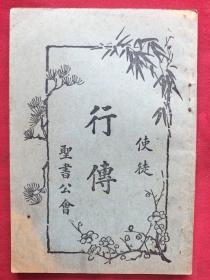 使徒
行傳
聖書公會